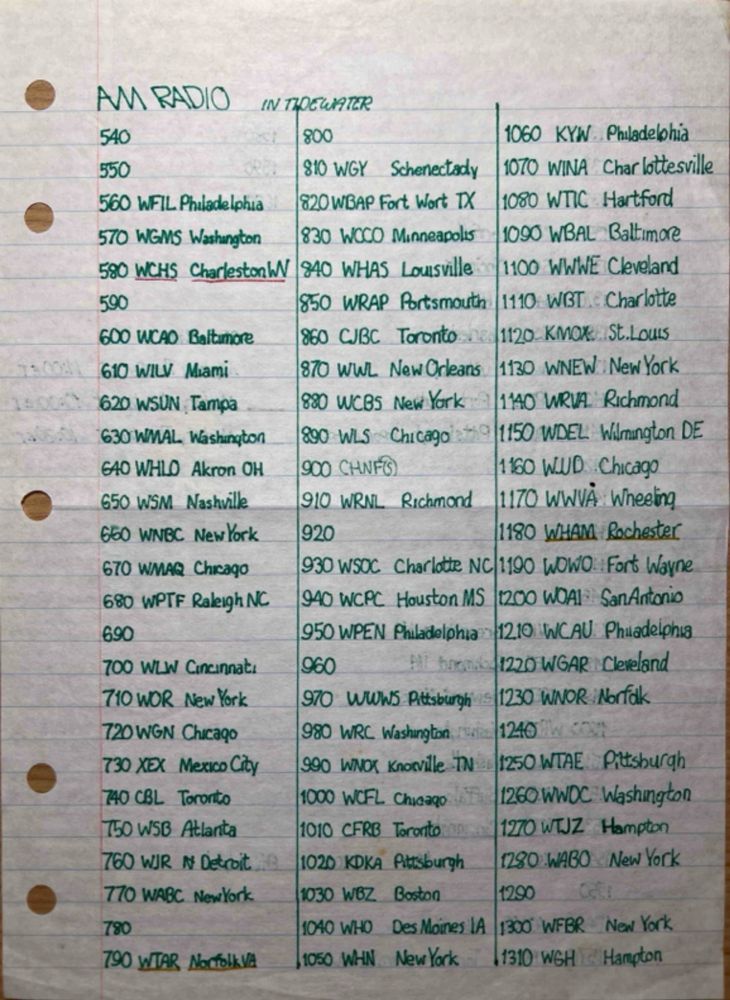 AM RADIO IN TIDEWATER
540
550
560 WFIL Philadelphia
570 WGMS Washington
580 WCHS Charleston WV
590
600 WCAO Baltimore
610 WILV Miami
620 WSUN Tampa
630 WMAL Washington
640 WHLO Akron OH
650 WSM Nashville
660 WNBC New York
670 WMAQ Chicago
680 WPTF Raleigh NC
690
700 WLW Cincinnati
710 WOR New York
720 WGN Chicago
730 XEX Mexico City
740 CBL Toronto
750 WSB Atlanta
760 WJR Detroit
770 WABC New York
780
790 WTAR Norfolk VA
800
810 WGY Schenectady
820 WBAP Fort Wort TX
830 WCCO Minneapolis
840 WHAS Louisville
850 WRAP Portsmouth
860 CJBC Toronto
870 WWL New Orleans
880 WCBS New York
890 WLS Chicago
900 CHNF(S)
910 WRNL Richmond
920
930 WSOC Charlotte NC
940 WCPC Houston MS
950 WPEN Philadelphia
960
970 WWWS Pittsburgh
980 WRC Washington
990 WNOX Knoxville TN
1000 WCFL Chicago
1010 CFRB Toronto
1020 KDKA Pittsburgh
1030 WBZ Boston
1040 WHO Des Moines IA
1050 WHN New York
1060 KYW Philadelphia
1070 WINA Charlottesville
1080 WTIC Hartford
1090 WBAL Baltimore
1100 WWWE Cleveland
1110 WBT Charlotte
1120 KMOX St. Louis
1130 WNEW New York
1140 WRVA Richmond
1150 WDEL Wilmington DE
1160 WJJD Chicago
1170 WWVA Wheeling
1180 WHAM Rochester
1190 WOWO Fort Wayne
1200 WOAI San Antonio
1210 WCAU Philadelphia
1220 WGAR Cleveland
1230 WNOR Norfolk
1240
1250 WTAE Pittsburgh
1260 WWDC Washington
1270 WTJZ Hampton
1280 WABO New York
1290
1300 WFBR New York
1310 WGH Hampton